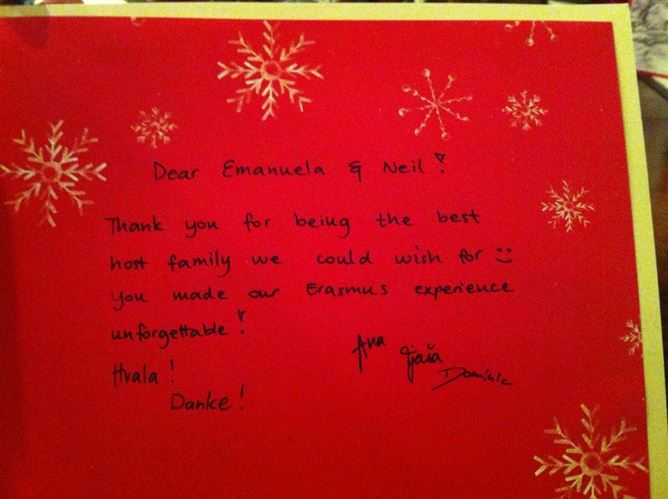 Dear Emanuela & Neil!
Thank you for being the best
host family we could wish for :)
you made our Erasmus experience
unforgettable!
Hvala!
Danke!
Ana
Tjaša
Dominic